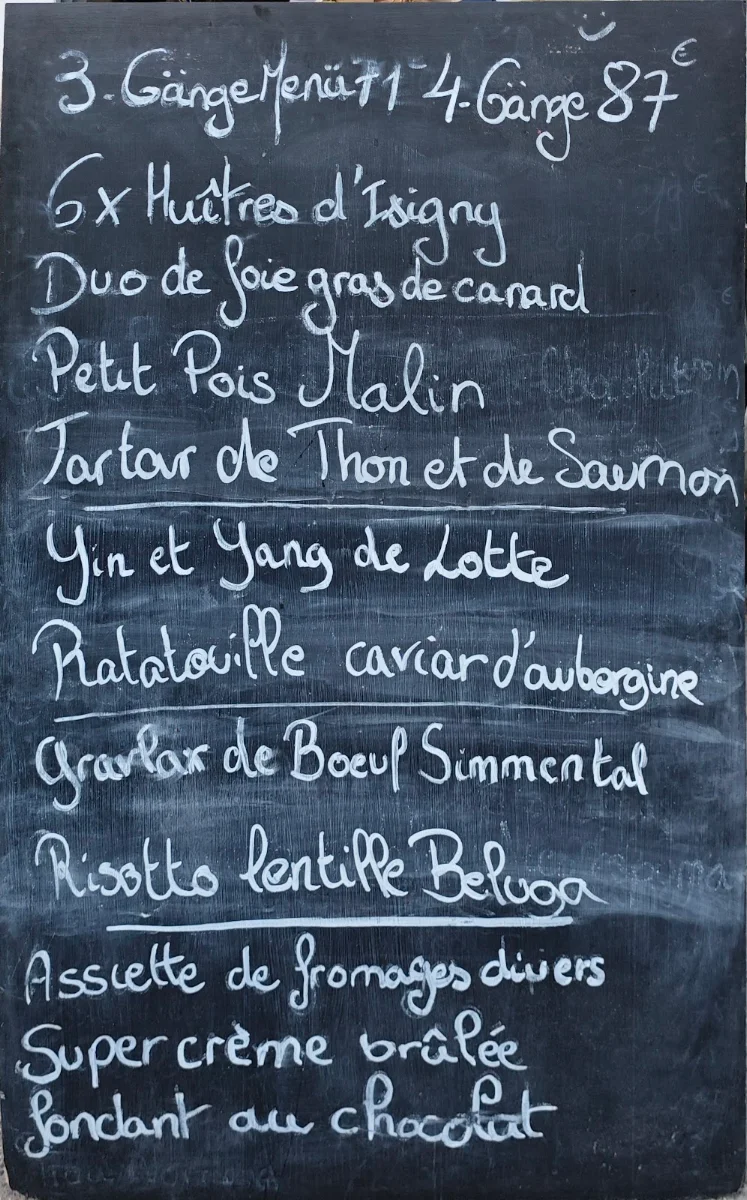 3-Gänge Menü 71 4-Gänge 87€
6x Huîtres d'Isigny
Duo de foie gras de canard
Petit Pois Malin
Tartar de Thon et de Saumon
Yin et Yang de Lotte
Ratatouille caviar d'aubergine
Gravlax de Boeuf Simmental
Risotto lentille Beluga
Assiette de fromages divers
Super crème brûlée
fondant au chocolat